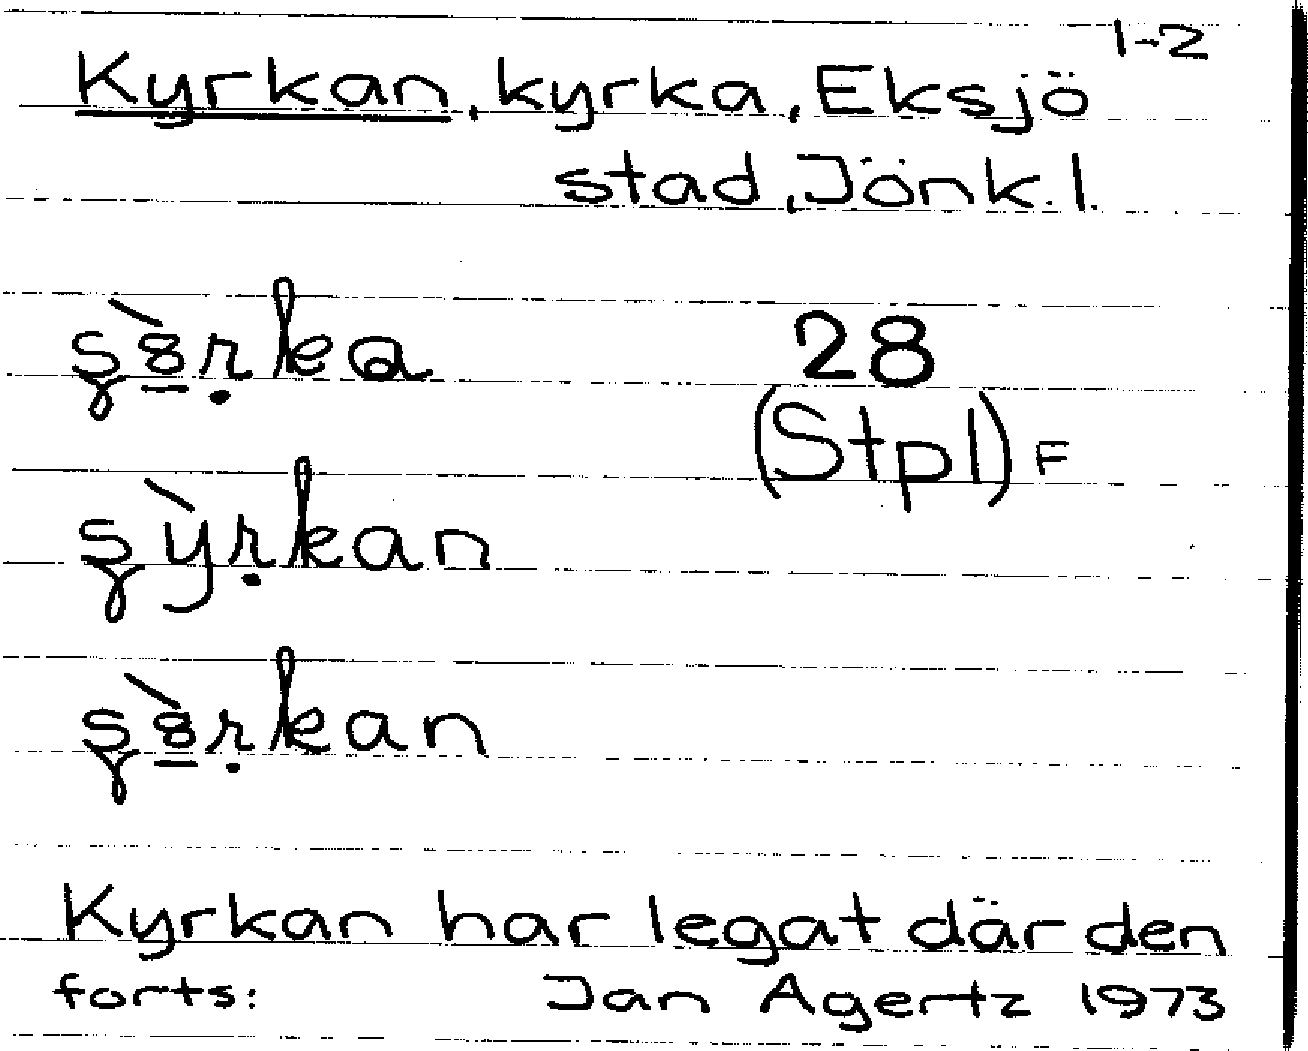 1-2
Kyrkan, kyrka, Eksjö
stad, Jönk. l.
28
(Stpl) F
Kyrkan har legat där den
forts: Jan Agertz 1973